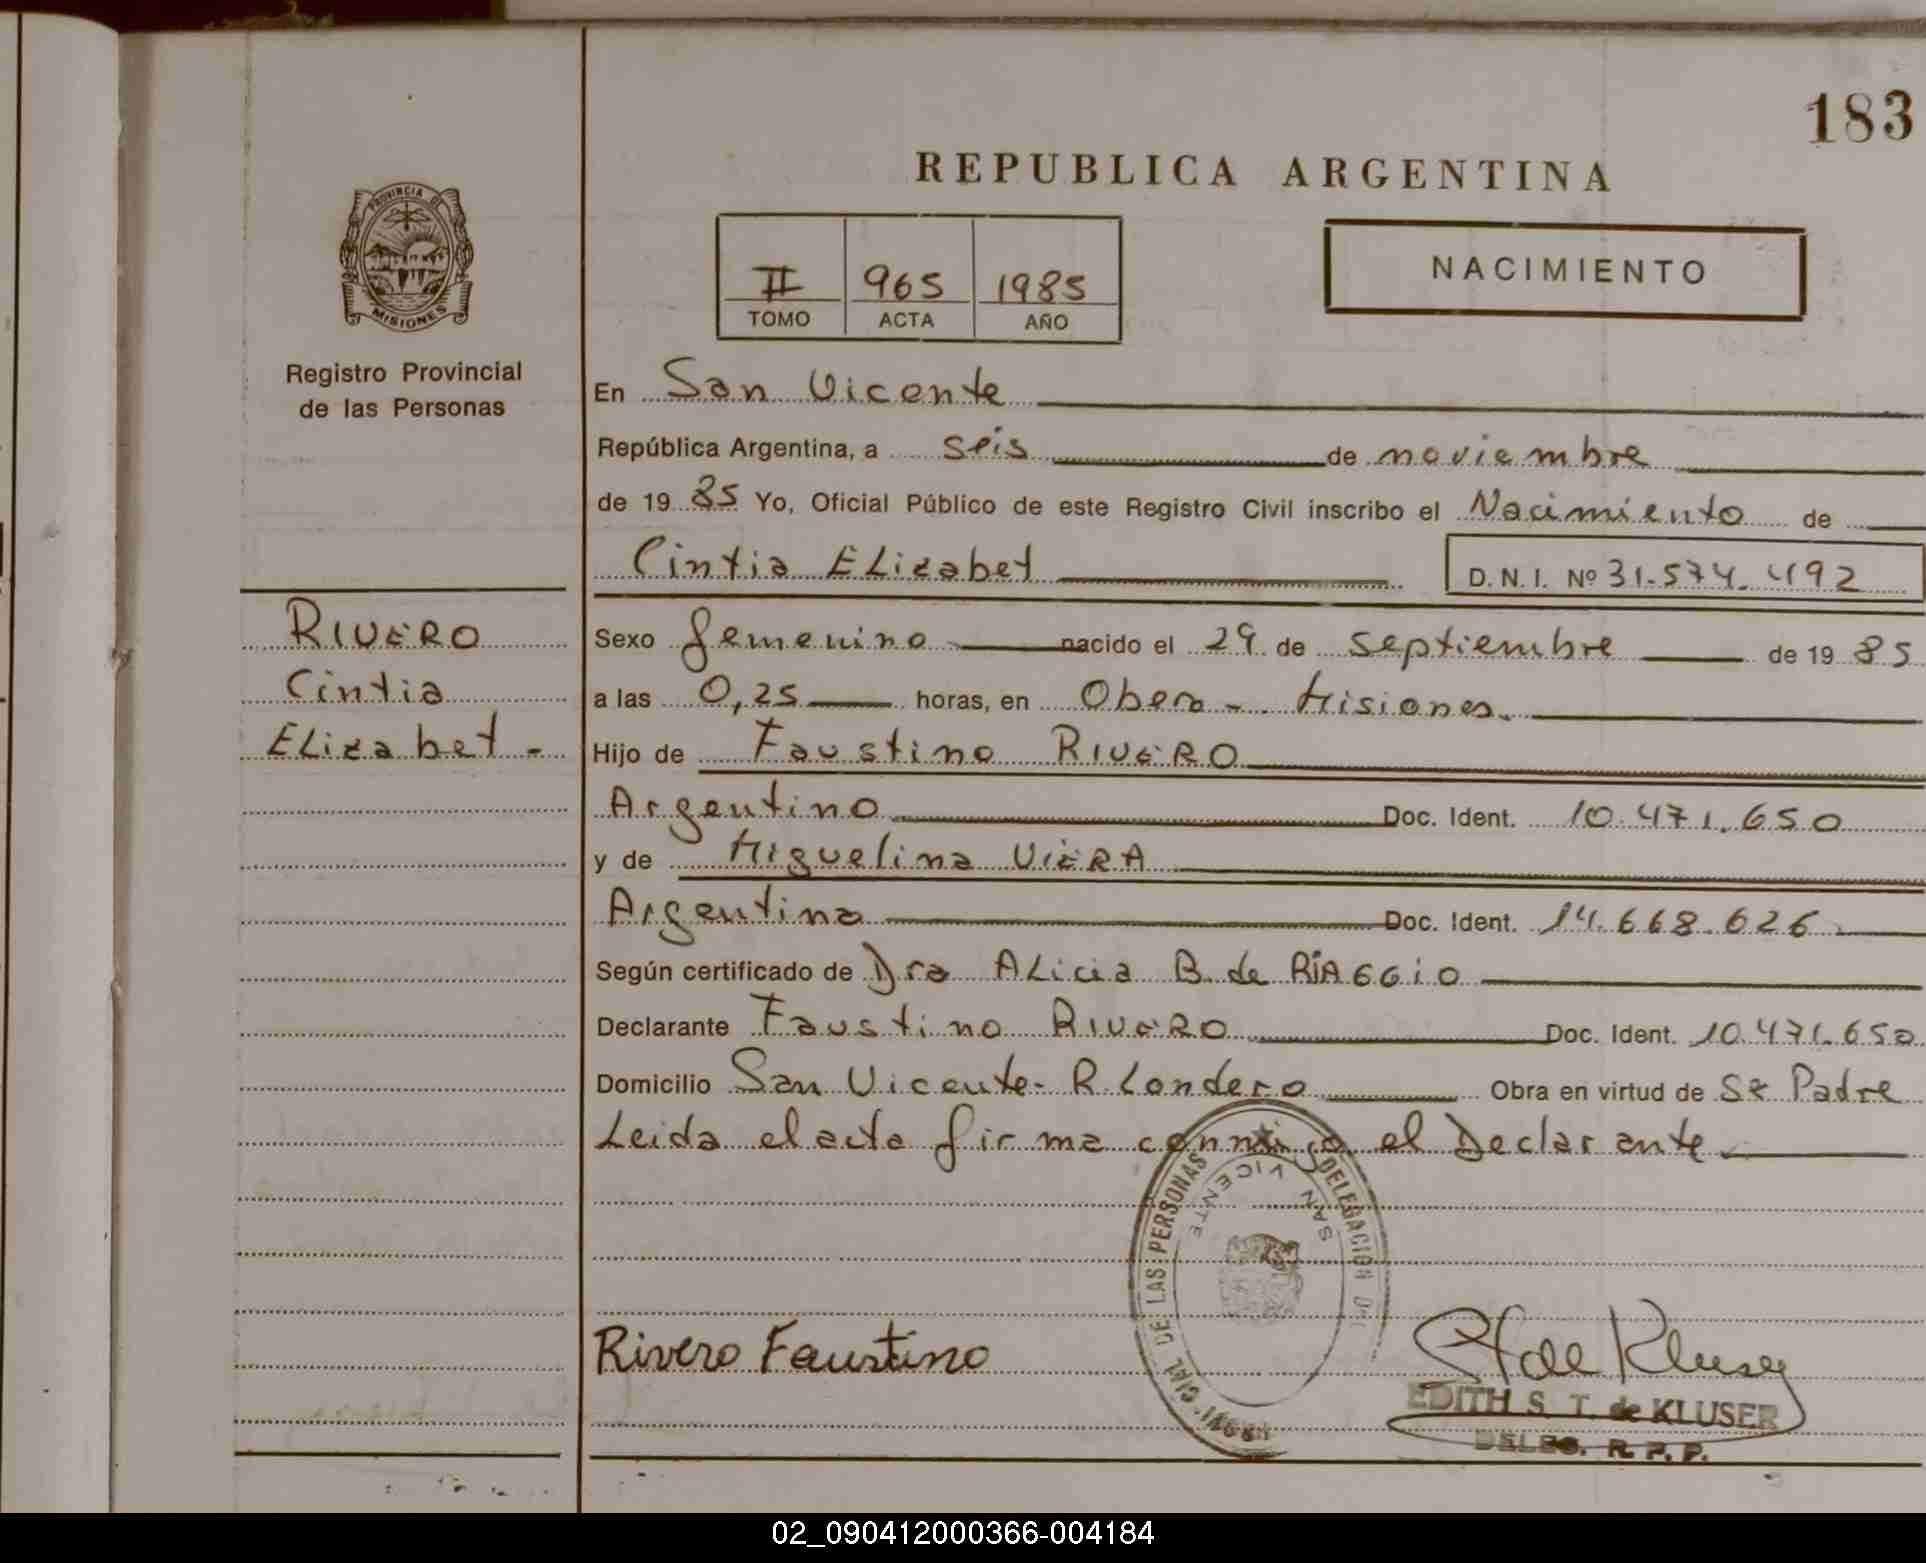 183
REPUBLICA ARGENTINA
PROVINCIA DE
MISIONES
II 965 1985
TOMO ACTA AÑO
NACIMIENTO
Registro Provincial
de las Personas
RIVERO
Cintia
Elizabet -
En San Vicente
República Argentina, a seis de noviembre
de 19 85 Yo, Oficial Público de este Registro Civil inscribo el Nacimiento de
Cintia Elizabet D.N.I. Nº 31.574.492
Sexo femenino nacido el 29 de septiembre de 19 85
a las 0,25 horas, en Obera - Misiones.
Hijo de Faustino RIVERO
Argentino Doc. Ident. 10.471.650
y de Miguelina VIERA
Argentina Doc. Ident. 14.668.626
Según certificado de Dra Alicia B. de RIAGGIO
Declarante Faustino RIVERO Doc. Ident. 10.471.650
Domicilio San Vicente - R. Londero Obra en virtud de Padre
Leida el acta firma conmigo el Declarante
DELEGACION DEL CIAL DE LAS PERSONAS
SAN VICENTE
Rivero Faustino
de Kluser
EDITH S. T. de KLUSER
DELEG. R. P. P.
02_090412000366-004184